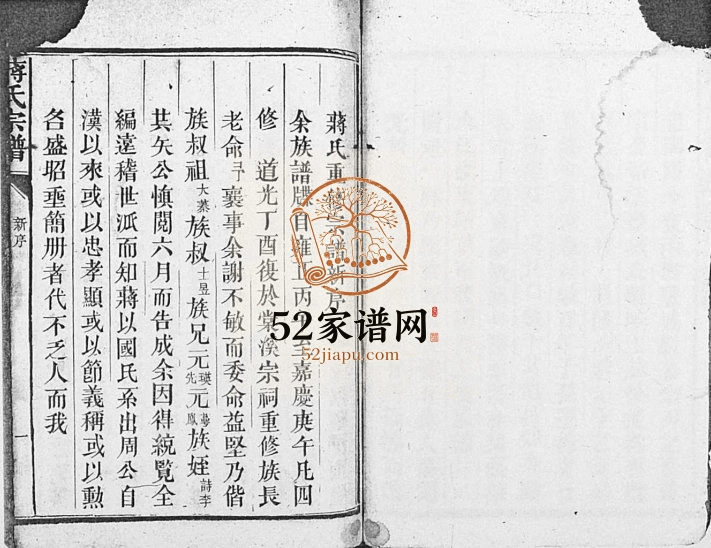 蔣氏重修宗譜新序
余族譜牒自雍正丙至嘉慶庚午凡四
修 道光丁酉復於棠溪宗祠重修族長
老命予襄事余謝不敏而委命益堅乃偕
族叔祖大葇族叔士昱族兄元瑛元先元鳳族姪詩李
共矢公慎閱六月而告成余因得統覽全
編遠稽世派而知蔣以國氏系出周公自
漢以來或以忠孝顯或以節義稱或以勲
名盛昭垂簡册者代不乏人而我
蔣氏宗譜
新序
一
52家谱网
52jiapu.com